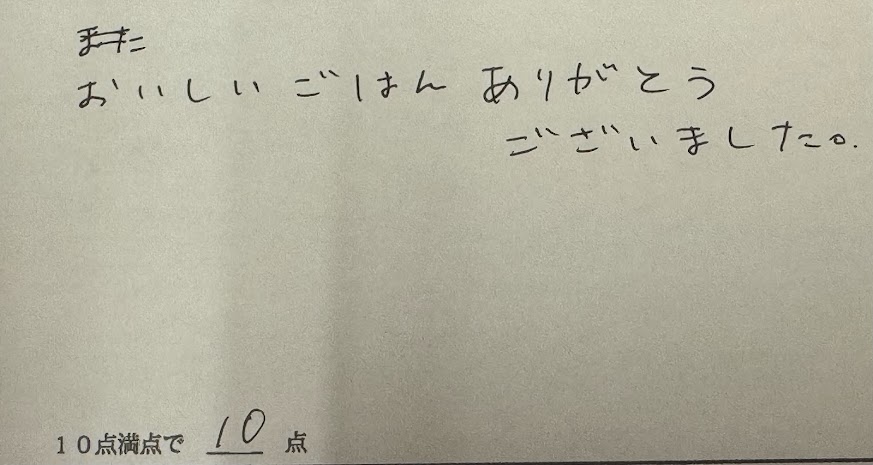 また
おいしいごはん ありがとう
ございました。
10点満点で 10 点